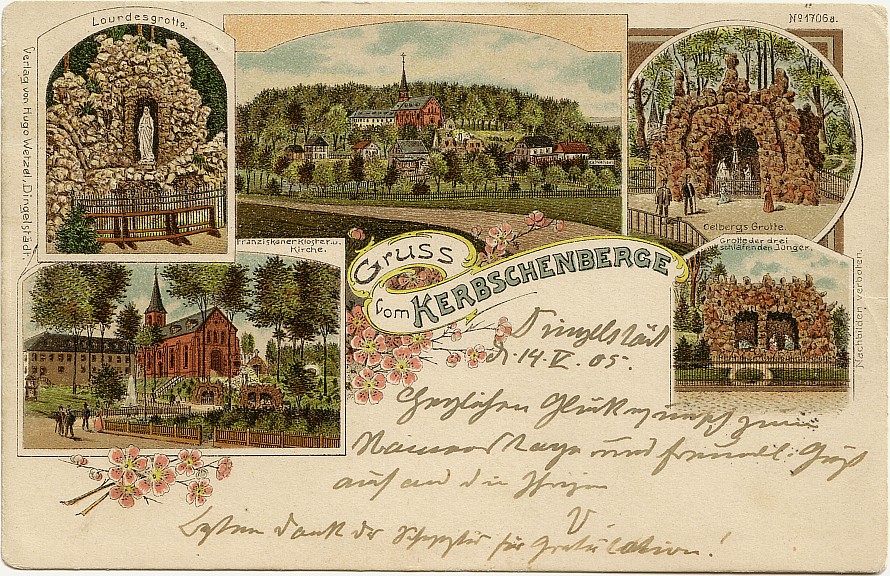 Lourdesgrotte.
No 1706a.
Verlag von Hugo Wetzel, Dingelstädt.
Franziskaner Kloster u.
Kirche.
Oelbergs Grotte.
Grotte der drei
schlafenden Jünger.
Nachbilden verboten.
Gruss
vom KERBSCHENBERGE
Dingelstädt
d. 14. V. 05.
Herzlichen Glückwunsch zum
Namenstage und freundl. Gruß
auf an die
Besten Dank der für Gratulation!